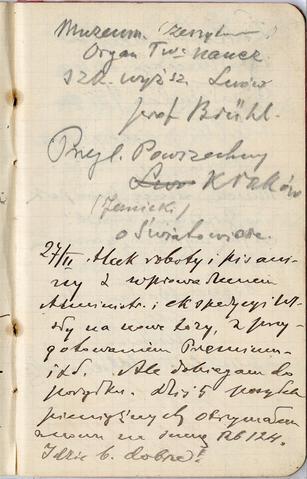 Muzeum. (zeszyt
Organ Tw: naucz.
szk. wyższ. Lwów
prof Brühl.
Przegl. Powszechny
Lwo Kraków
(Zernicki)
o Światowiase.
27/II. Huk roboty i pisani-
ny z wprowadzeniem
Administr. i ekspedycyi W-
sły na nowe tory, z przy
gotowaniem Premium
itd. Ale dobiegam do
porządku. Dziś 5 posyłek
pieniężnych otrzymałem
znowu na sumę Rb 124.
Idzie b. dobrze!